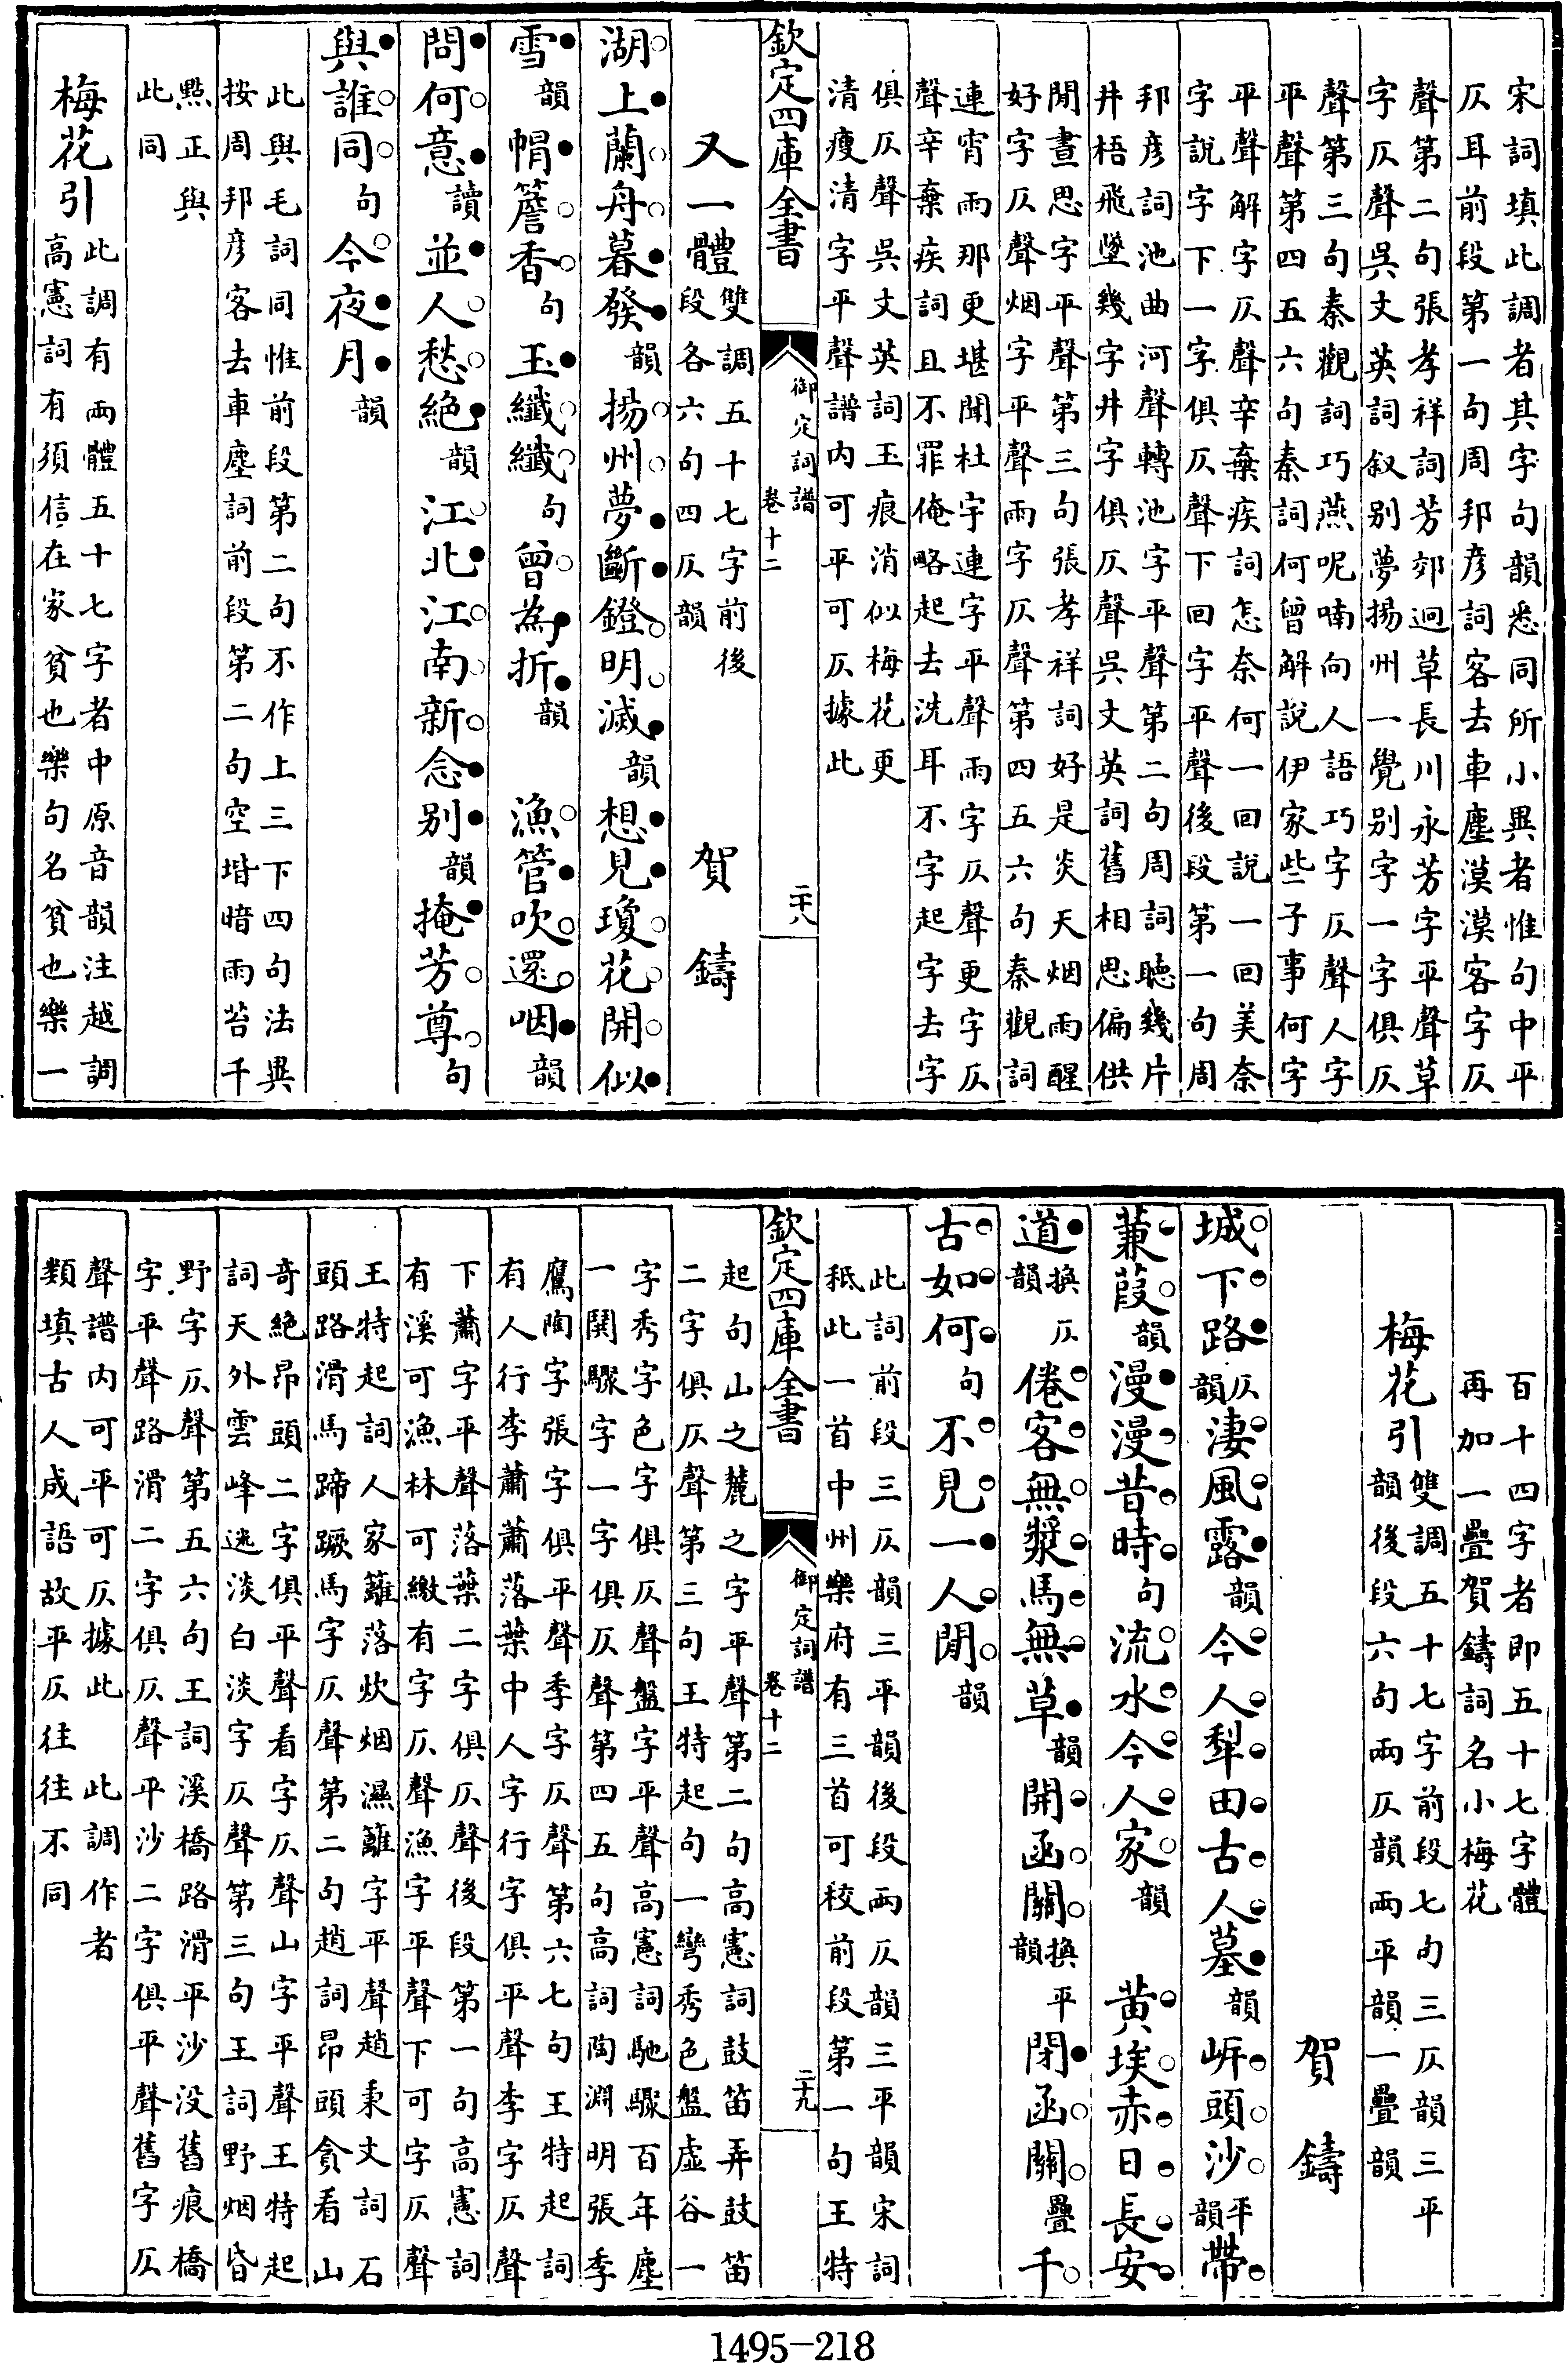 宋詞填此調者其字句韻悉同所小異者惟句中平
仄耳前段第一句周邦彦詞客去車塵漠漠客字仄
聲第二句張孝祥詞芳郊迥草長川永芳字平聲草
字仄聲吳文英詞叙别夢揚州一覺别字一字俱仄
聲第三句秦觀詞巧燕呢喃向人語巧字仄聲人字
平聲第四五六句秦詞何曾解說伊家些子事何字
平聲解字仄聲辛棄疾詞怎奈何一回說一回美奈
字說字下一字俱仄聲下回字平聲後段第一句周
邦彦詞池曲河聲轉池字平聲第二句周詞聽幾片
井梧飛墜幾字井字俱仄聲吳文英詞舊相思偏供
閒晝思字平聲第三句張孝祥詞好是炎天烟雨醒
好字仄聲烟字平聲雨字仄聲第四五六句秦觀詞
連宵雨那更堪聞杜宇連字平聲雨字仄聲更字仄
聲辛棄疾詞且不罪俺略起去洗耳不字起字去字
俱仄聲吳文英詞玉痕消似梅花更
清瘦清字平聲譜内可平可仄據此
欽定四庫全書
御定詞譜
卷十二
二十八
又一體雙調五十七字前後
段各六句四仄韻
賀鑄
湖上蘭舟暮發韻揚州夢斷鐙明滅韻想見瓊花開似
雪韻帽簷香句玉纖纖句曾為折韻　漁管吹還咽韻
問何意讀並人愁絶韻江北江南新念别韻掩芳尊句
與誰同句今夜月韻
此與毛詞同惟前段第二句不作上三下四句法異
按周邦彦客去車塵詞前段第二句空堦暗雨苔千
點正與
此同
梅花引此調有兩體五十七字者中原音韻注越調
高憲詞有須信在家貧也樂句名貧也樂一
百十四字者即五十七字體
再加一疊賀鑄詞名小梅花
梅花引雙調五十七字前段七句三仄韻三平
韻後段六句兩仄韻兩平韻一疊韻
賀鑄
城下路仄韻淒風露韻今人犁田古人墓韻岍頭沙平韻帶
蒹葭韻漫漫昔時句流水今人家韻　黄埃赤日長安
道換仄韻倦客無漿馬無草韻開函關換平韻閉函關疊千
古如何句不見一人閒韻
此詞前段三仄韻三平韻後段兩仄韻三平韻宋詞
秪此一首中州樂府有三首可校前段第一句王特
欽定四庫全書
御定詞譜
卷十二
二十九
起句山之麓之字平聲第二句高憲詞鼓笛弄鼓笛
二字俱仄聲第三句王特起句一彎秀色盤虛谷一
字秀字色字俱仄聲盤字平聲高憲詞馳驟百年塵
一閧驟字一字俱仄聲第四五句高詞陶淵明張季
鷹陶字張字俱平聲季字仄聲第六七句王特起詞
有人行李蕭蕭落葉中人字行字俱平聲李字仄聲
下蕭字平聲落葉二字俱仄聲後段第一句高憲詞
有溪可漁林可繳有字仄聲漁字平聲下可字仄聲
王特起詞人家籬落炊烟濕籬字平聲趙秉文詞石
頭路滑馬蹄蹶馬字仄聲第二句趙詞昂頭貪看山
奇絶昂頭二字俱平聲看字仄聲山字平聲王特起
詞天外雲峰迷淡白淡字仄聲第三句王詞野烟昏
野字仄聲第五六句王詞溪橋路滑平沙没舊痕橋
字平聲路滑二字俱仄聲平沙二字俱平聲舊字仄
聲譜内可平可仄據此　此調作者
類填古人成語故平仄往往不同
1495-218